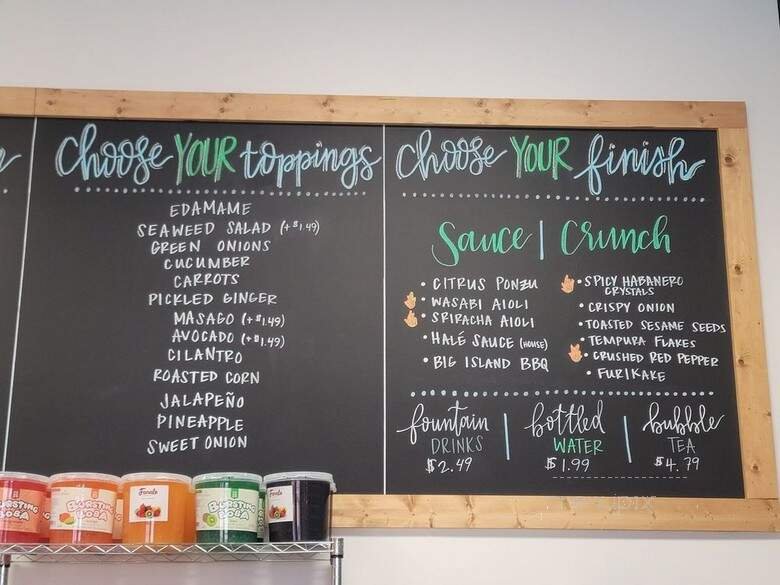 Choose YOUR toppings
EDAMAME
SEAWEED SALAD (+$1.49)
GREEN ONIONS
CUCUMBER
CARROTS
PICKLED GINGER
MASAGO (+$1.49)
AVOCADO (+$1.49)
CILANTRO
ROASTED CORN
JALAPEÑO
PINEAPPLE
SWEET ONION
Choose YOUR finish
Sauce | Crunch
• CITRUS PONZU
• WASABI AIOLI
• SRIRACHA AIOLI
• HALÉ SAUCE (HOUSE)
• BIG ISLAND BBQ
• SPICY HABANERO
CRYSTALS
• CRISPY ONION
• TOASTED SESAME SEEDS
• TEMPURA FLAKES
• CRUSHED RED PEPPER
• FURIKAKE
fountain
DRINKS
$2.49
bottled
WATER
$1.99
bubble
TEA
$4.79
BURSTING
BOBA
Fanale
BURSTING
BOBA
Fanale